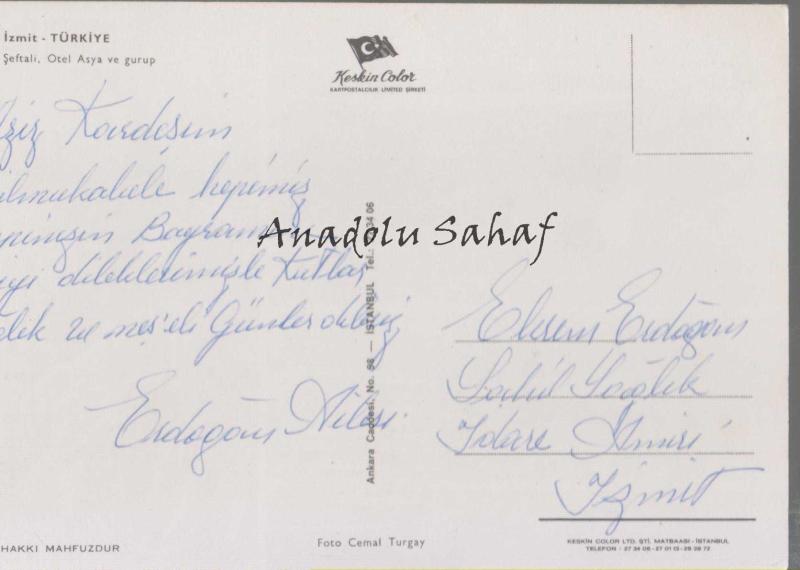 İzmit - TÜRKİYE
Şeftali, Otel Asya ve gurup
Keskin Color
KARTPOSTALCILIK LİMİTED ŞİRKETİ
Aziz Kardeşim
ilmukabele hepimiz
Bayramı
iyi dileklerimizle Kutlar
ve neş'eli Günler dileriz
Erdoğan Ailesi
Anadolu Sahaf
Ankara Caddesi. No. 98 — İSTANBUL Tel.: 34 06
Ekrem Erdoğan
Sahil Sağlık
İdare Amiri
İzmit
HAKKI MAHFUZDUR
Foto Cemal Turgay
KESKİN COLOR LTD. ŞTİ. MATBAASI - İSTANBUL
TELEFON : 27 34 06 - 27 01 13 - 28 28 72